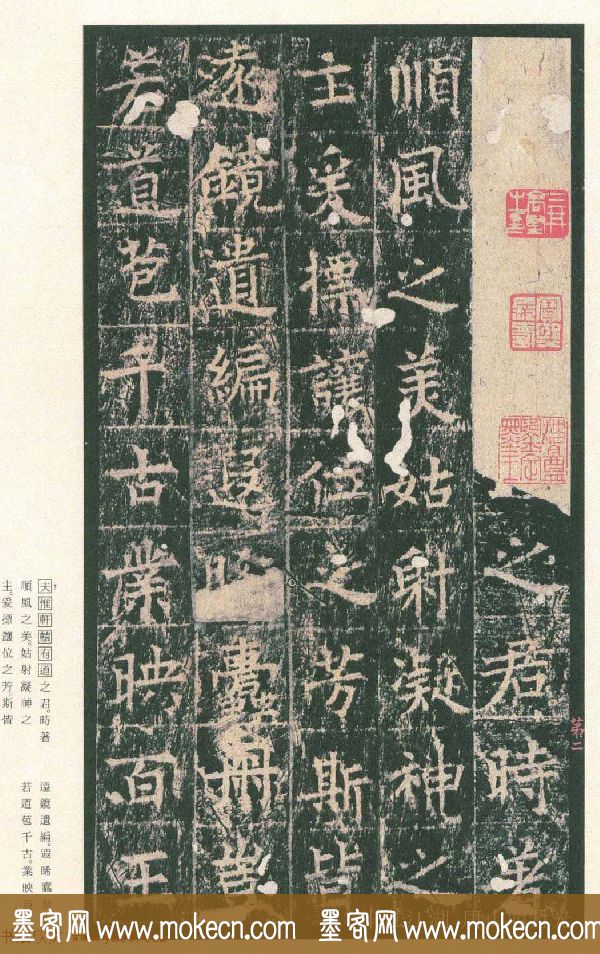 之君時著
順風之美姑射凝神之
主爰摽讓位之芳斯皆
遠鏡遺編遐晞蠹冊豈
若道苞千古業映百王
第二
夫惟軒轅有道之君。時著
順風之美。姑射凝神之
主。爰摽讓位之芳。斯皆
遠鏡遺編。遐晞蠹
若道苞千古。業映
墨客网 www.mokecn.com 墨客网 www.mokecn.com